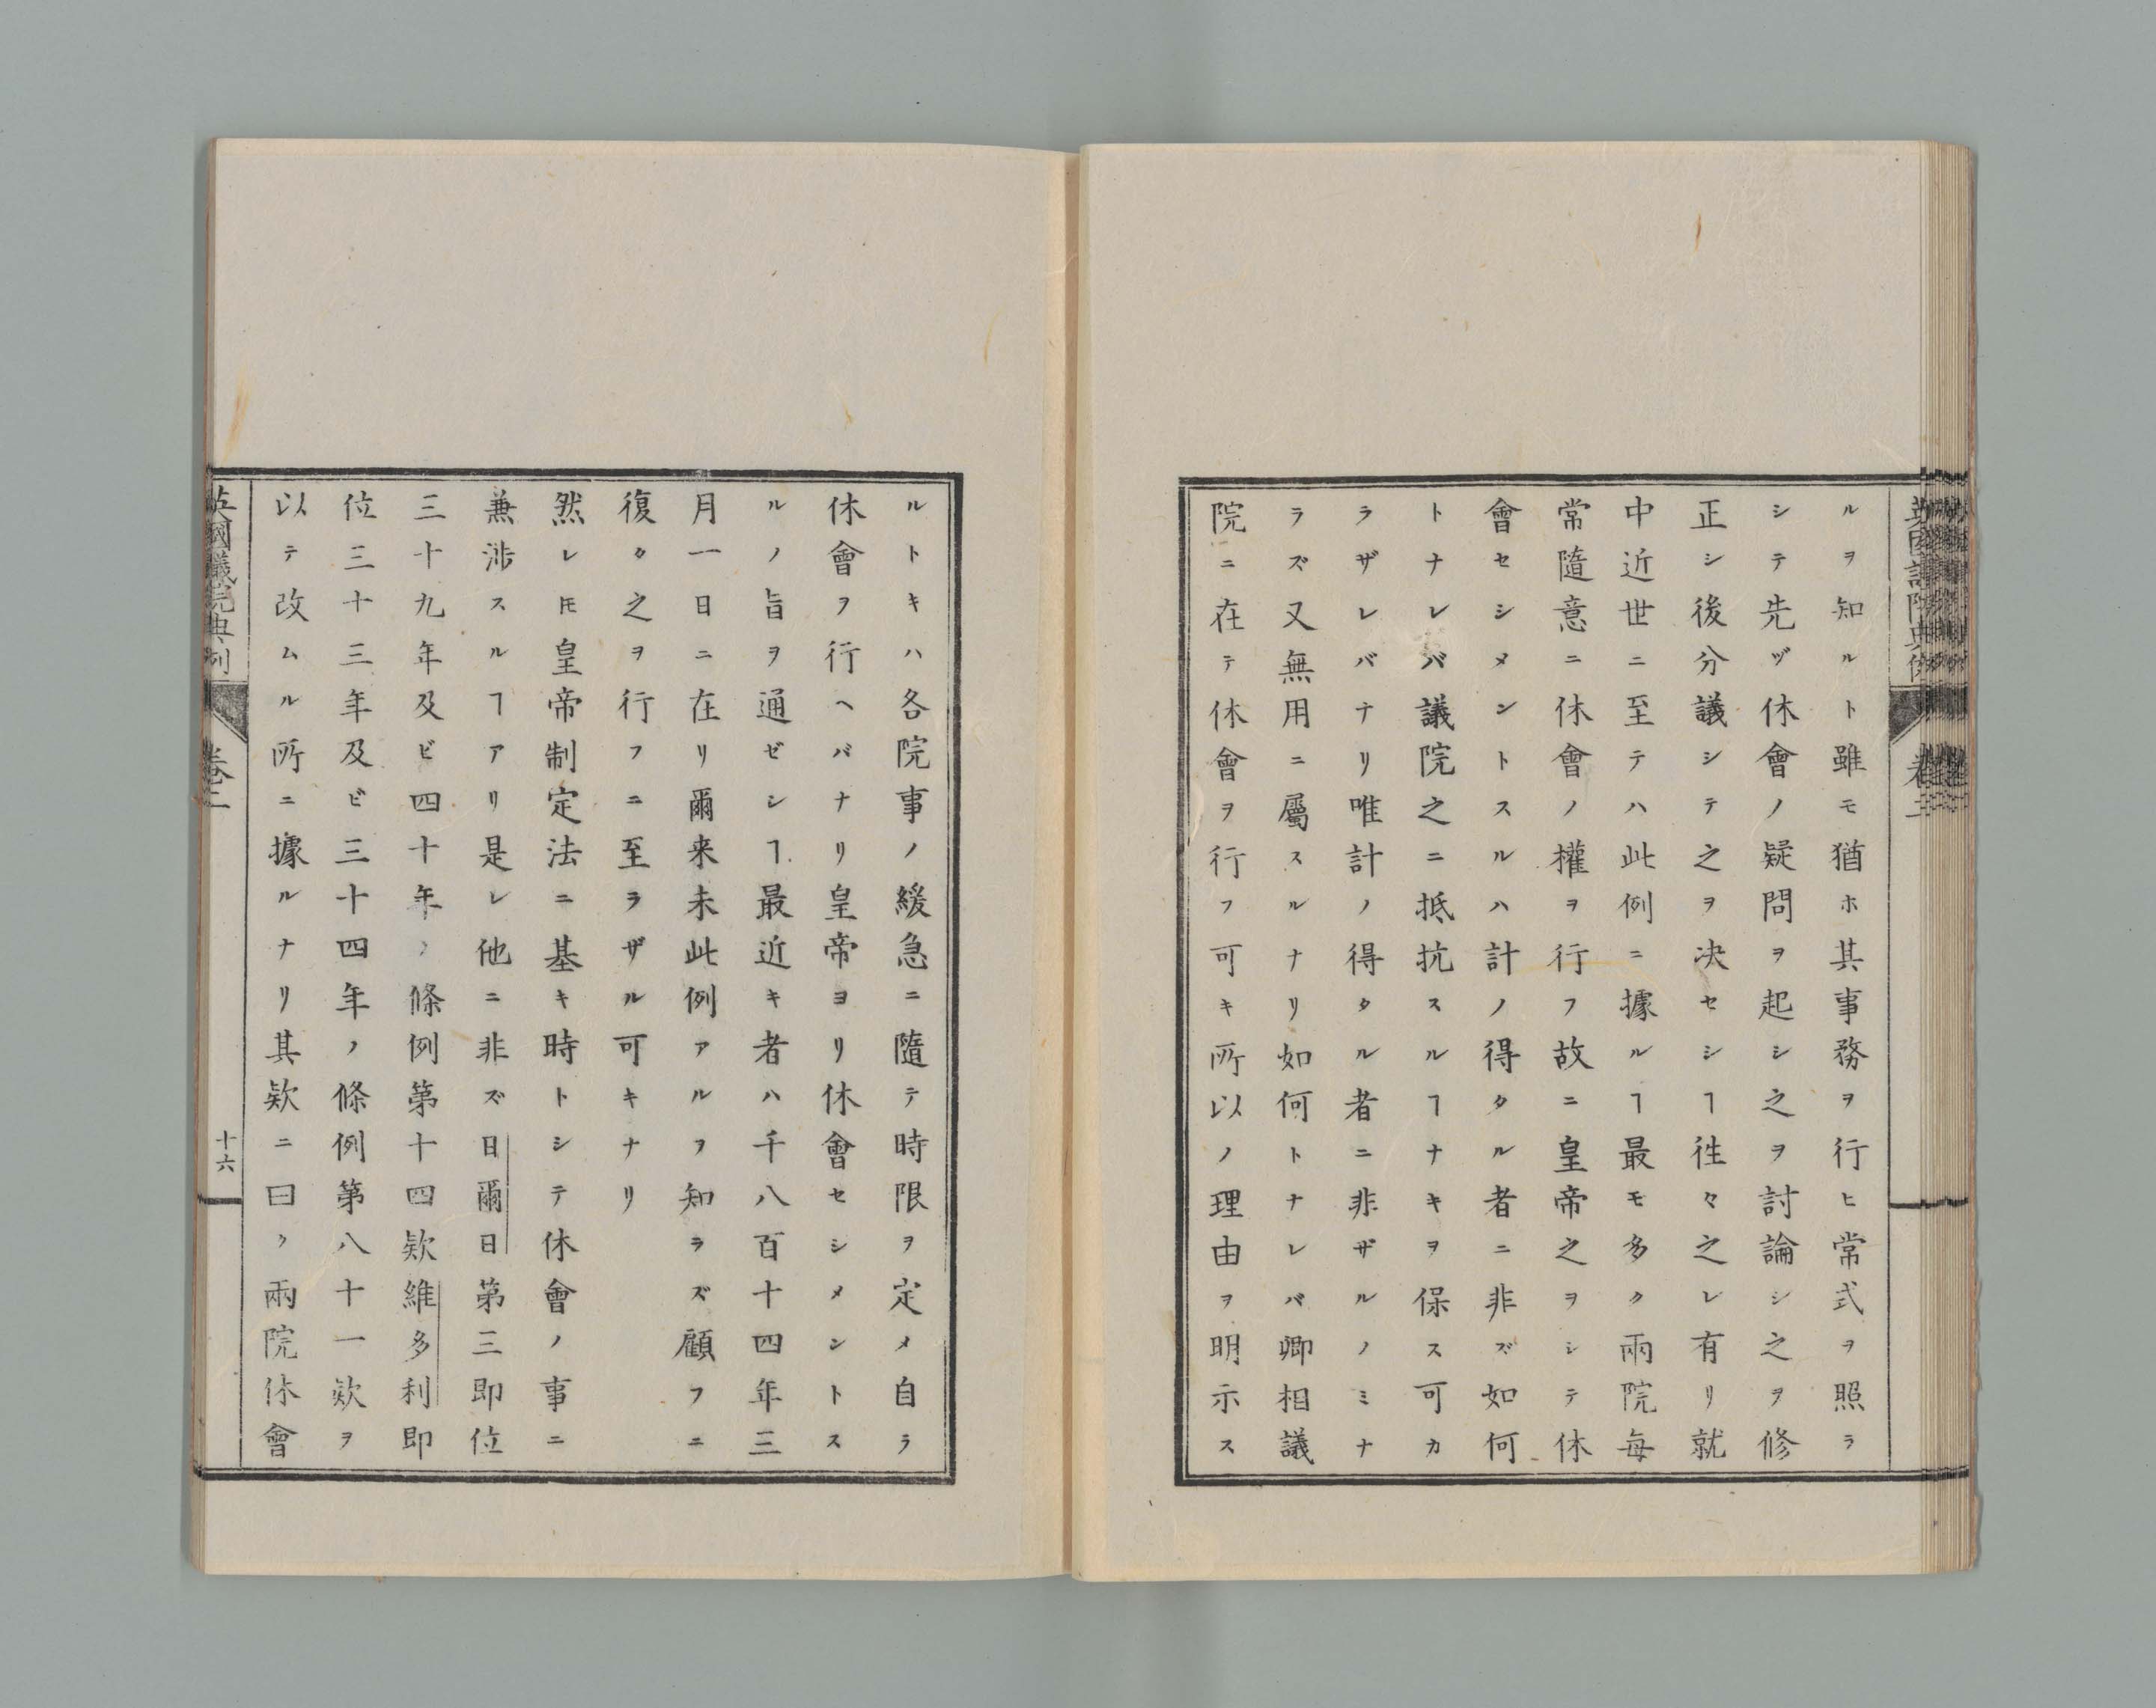 英國議院典例
卷二
ルヲ知ルト雖モ猶ホ其事務ヲ行ヒ常式ヲ照ラ
シテ先ヅ休會ノ疑問ヲ起シ之ヲ討論シ之ヲ修
正シ後分議シテ之ヲ決セシヿ往々之レ有リ就
中近世ニ至テハ此例ニ據ルヿ最モ多ク兩院每
常隨意ニ休會ノ權ヲ行フ故ニ皇帝之ヲシテ休
會セシメントスルハ計ノ得タル者ニ非ズ如何
トナレバ議院之ニ抵抗スルヿナキヲ保ス可カ
ラザレバナリ唯計ノ得タル者ニ非ザルノミナ
ラズ又無用ニ屬スルナリ如何トナレバ卿相議
院ニ在テ休會ヲ行フ可キ所以ノ理由ヲ明示ス
ルトキハ各院事ノ緩急ニ隨テ時限ヲ定メ自ラ
休會ヲ行ヘバナリ皇帝ヨリ休會セシメントス
ルノ旨ヲ通ゼシヿ最近キ者ハ千八百十四年三
月一日ニ在リ爾来未此例アルヲ知ラズ顧フニ
復タ之ヲ行フニ至ラザル可キナリ
然レ𪜈皇帝制定法ニ基キ時トシテ休會ノ事ニ
兼渉スルヿアリ是レ他ニ非ズ日爾日第三即位
三十九年及ビ四十年ノ條例第十四欵維多利即
位三十三年及ビ三十四年ノ條例第八十一欵ヲ
以テ改ムル所ニ據ルナリ其欵ニ曰ク兩院休會
英國議院典例
卷二
十六